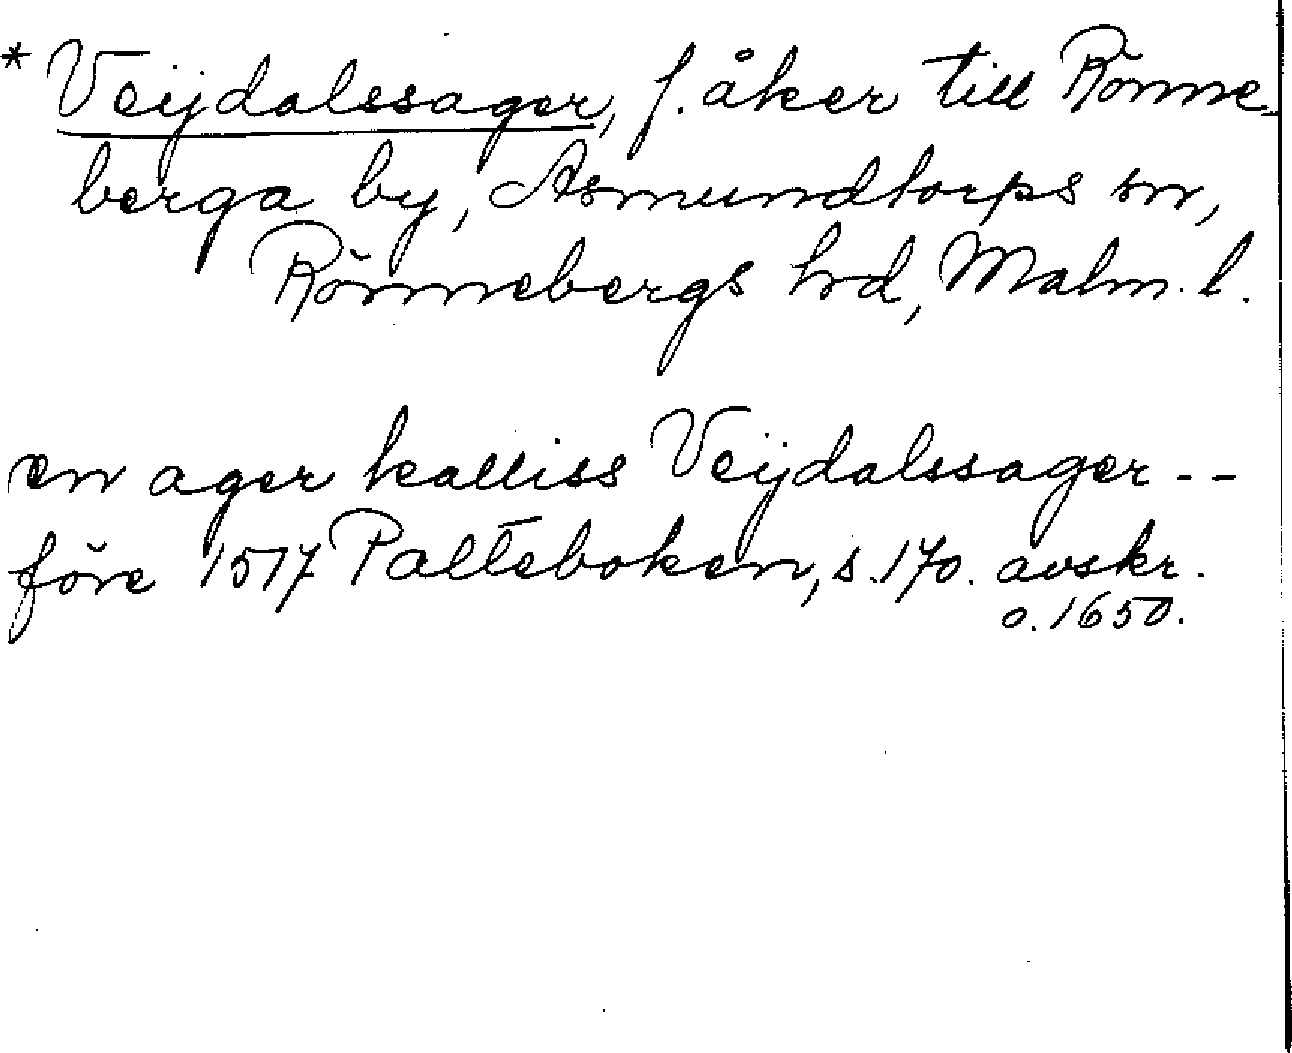 * Veijdalssager, f. åker till Rönne-
berga by, Asmundtorps sn,
Rönnebergs hd, Malm. l.
en ager kalliss Veijdalssager --
före 1517 Palteboken, s. 170. avskr.
o. 1650.